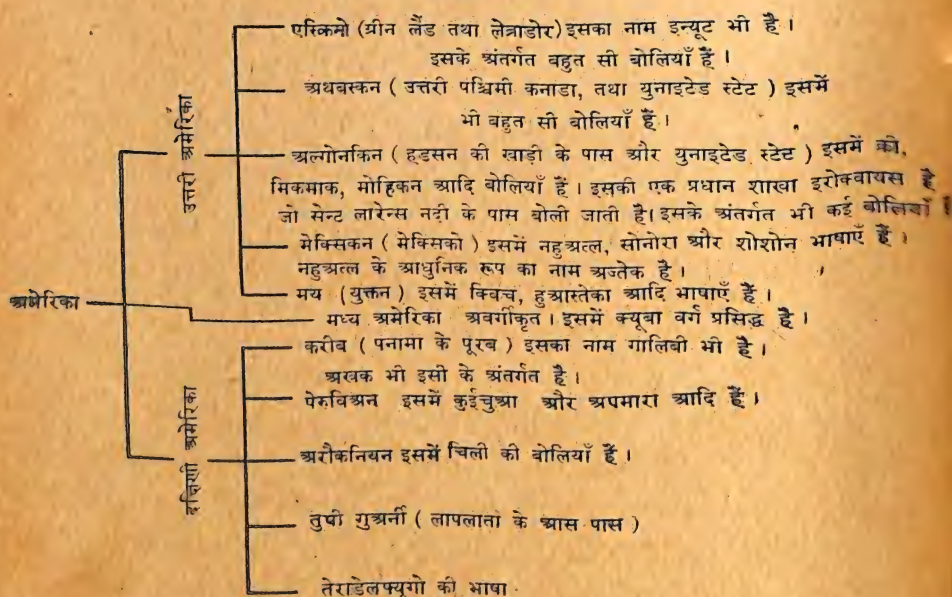 एस्किमो (ग्रीन लैंड तथा लेब्राडोर) इसका नाम इन्यूट भी है।
इसके अंतर्गत बहुत सी बोलियाँ हैं।
अथबस्कन ( उत्तरी पश्चिमी कनाडा, तथा युनाइटेड स्टेट ) इसमें
भी बहुत सी बोलियाँ हैं।
अल्गोनकिन ( हडसन की खाड़ी के पास और युनाइटेड स्टेट ) इसमें क्री,
मिकमाक, मोहिकन आदि बोलियाँ हैं। इसकी एक प्रधान शाखा इरोक्वायस है
जो सेन्ट लारेन्स नदी के पास बोली जाती है। इसके अंतर्गत भी कई बोलियाँ हैं
मेक्सिकन ( मेक्सिको ) इसमें नहुअत्ल, सोनोरा और शोशोन भाषाएँ हैं।
नहुअत्ल के आधुनिक रूप का नाम अज्तेक है।
मय (युक्तन) इसमें क्विच, हुआस्तेका आदि भाषाएँ हैं।
उत्तरी अमेरिका
अमेरिका
मध्य अमेरिका अवर्गीकृत। इसमें क्यूबा वर्ग प्रसिद्ध है।
करीब ( पनामा के पूरब ) इसका नाम गालिबी भी है।
अरवक भी इसी के अंतर्गत है।
पेरुविअन इसमें कुईचुआ और अपमारा आदि हैं।
अरौकनियन इसमें चिली की बोलियाँ हैं।
तुपी गुअर्नी ( लापलाता के आस पास )
तेराडेलफ्युगो की भाषा
दक्षिणी अमेरिका